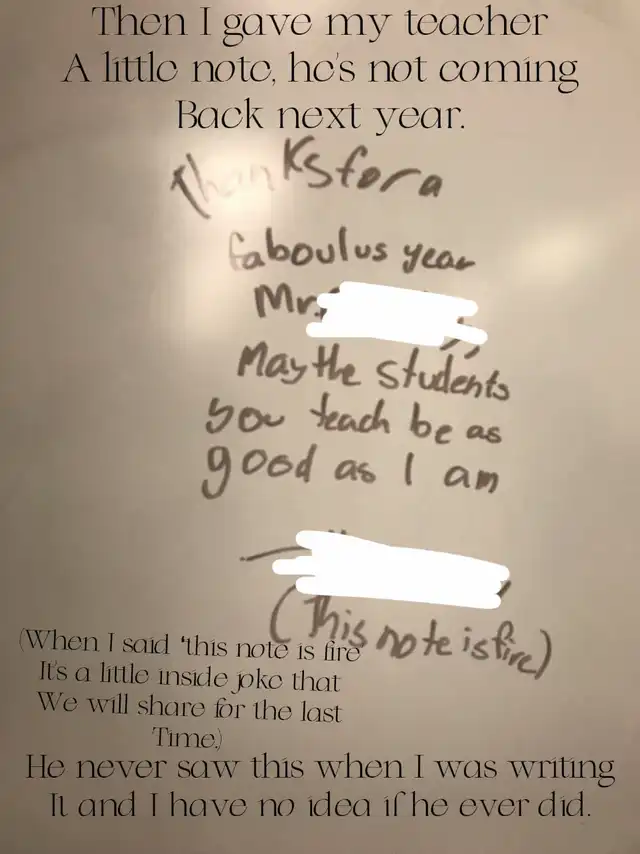 Then I gave my teacher
A little note, he's not coming
Back next year.
Thanks for a
faboulus year
Mr.
May the students
you teach be as
good as I am
(This note is fire)
(When I said "this note is fire
It's a little inside joke that
We will share for the last
Time.)
He never saw this when I was writing
It and I have no idea if he ever did.